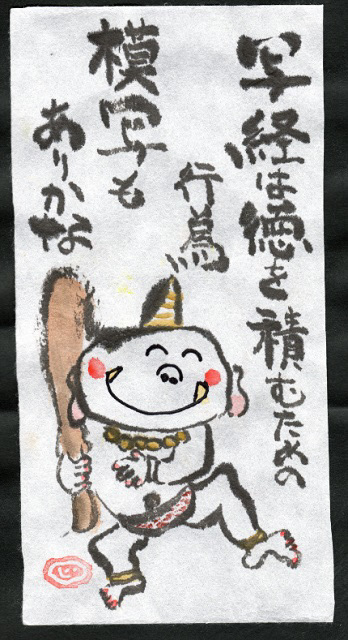 写経は徳を積むための
行為
模写も
ありかな